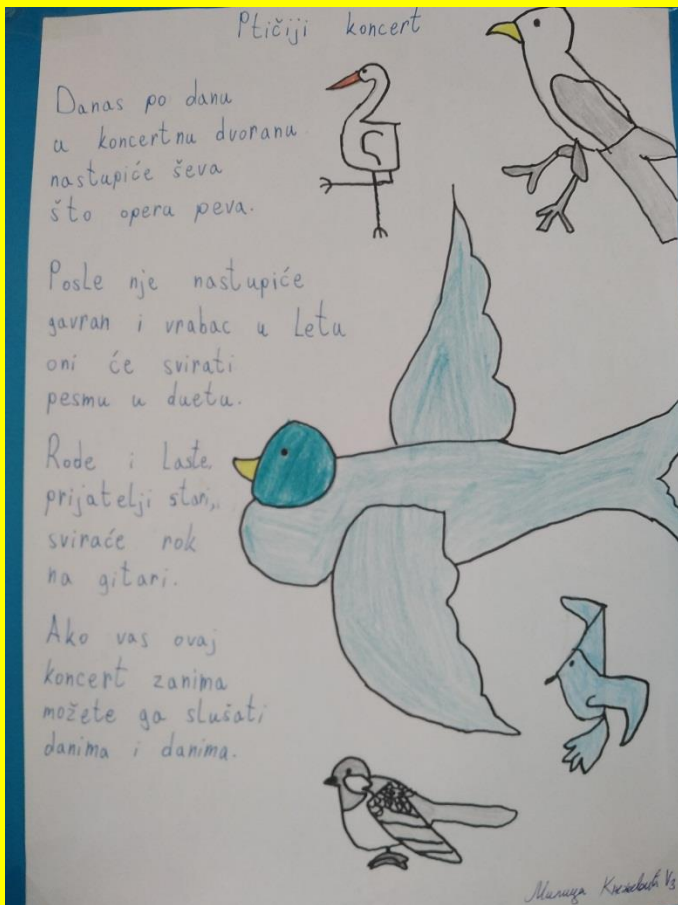 Ptičiji koncert
Danas po danu
u koncertnu dvoranu
nastupiće ševa
što operu peva.
Posle nje nastupiće
gavran i vrabac u letu
oni će svirati
pesmu u duetu.
Rode i laste,
prijatelji stari,
sviraće rok
na gitari.
Ako vas ovaj
koncert zanima
možete ga slušati
danima i danima.
Милица Кнежевић V3